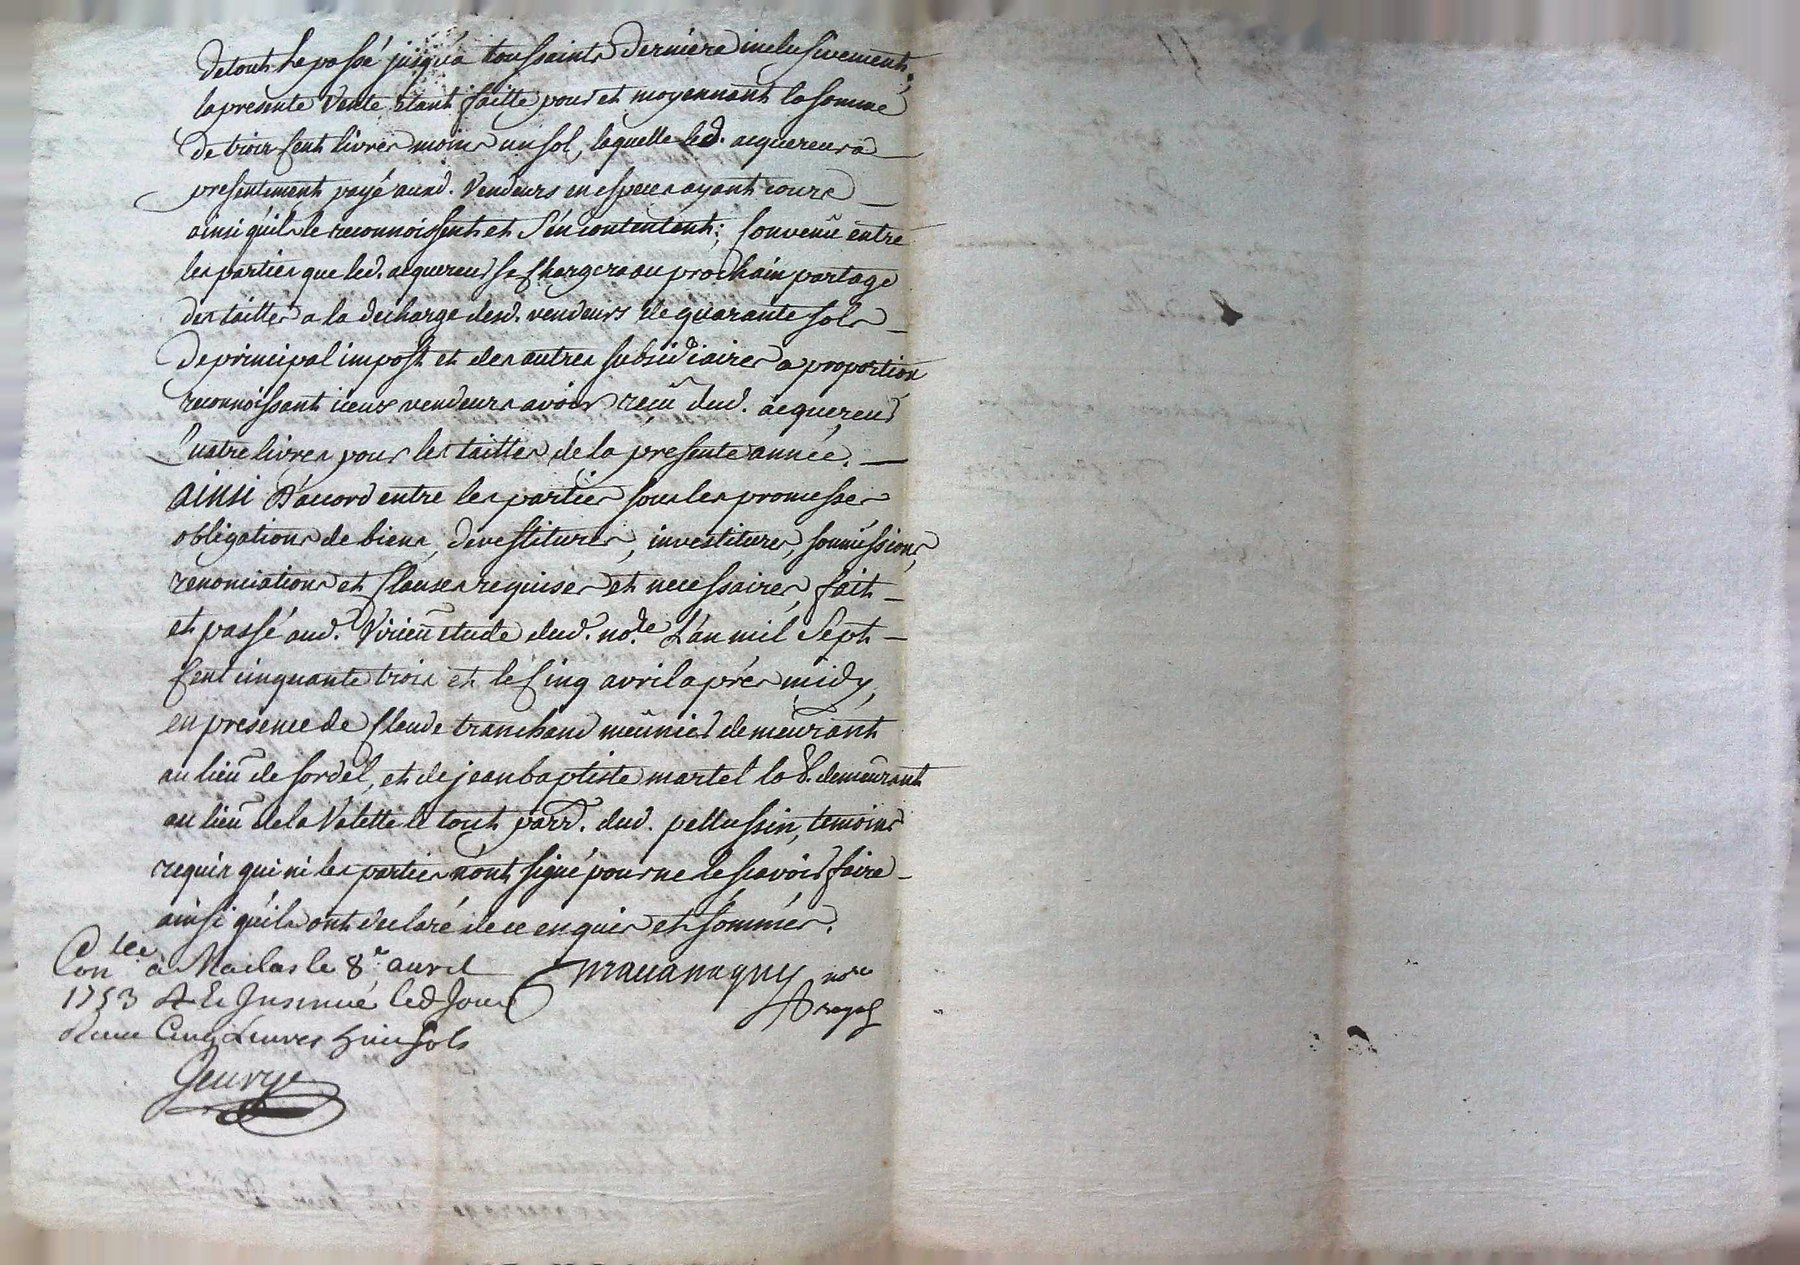 de tout le passé jusqu'a toussaints derniere inclusivement,
la presente vente etant faitte pour et moyennant la somme
de trois cent livres moins un sol, laquelle led. acquereur a
presentement payé ausd. vendeurs en especes ayant cours
ainsi qu'ils le reconnoissent et s'en contentent; convenû entre
les parties que led. acquereur se chargera au prochain partage
des tailles a la decharge desd. vendeurs de quarante sols
de principal impost et des autres subsidiaires a proportion
reconnoissant iceux vendeurs avoir reçû dud. acquereur
quatre livres pour les tailles de la presente année.
ainsi d'accord entre les parties sous les promesses
obligations de biens, devestitures, investitures, soumissions,
renonciations et clauses requises et necessaires, fait
et passé aud. Virieû etude dud. no.re L'an mil sept
cent cinquante trois et le cinq avril aprés midy,
en presence de Claude tranchand meûnier demeûrant
au lieû de sordel, et de jean baptiste martel lab. demeûrant
au lieû de la Valette le tout parr. dud. pellussin, temoins
requis qui ni les parties n'ont signé pour ne le scavoir faire
ainsi qu'ils ont declaré de ce enquis et sommés.
Con.lée à Maclas le 8e avril
1753 & Insinué led Jour
Recu Cinq Livres huit sols
no.re
royal